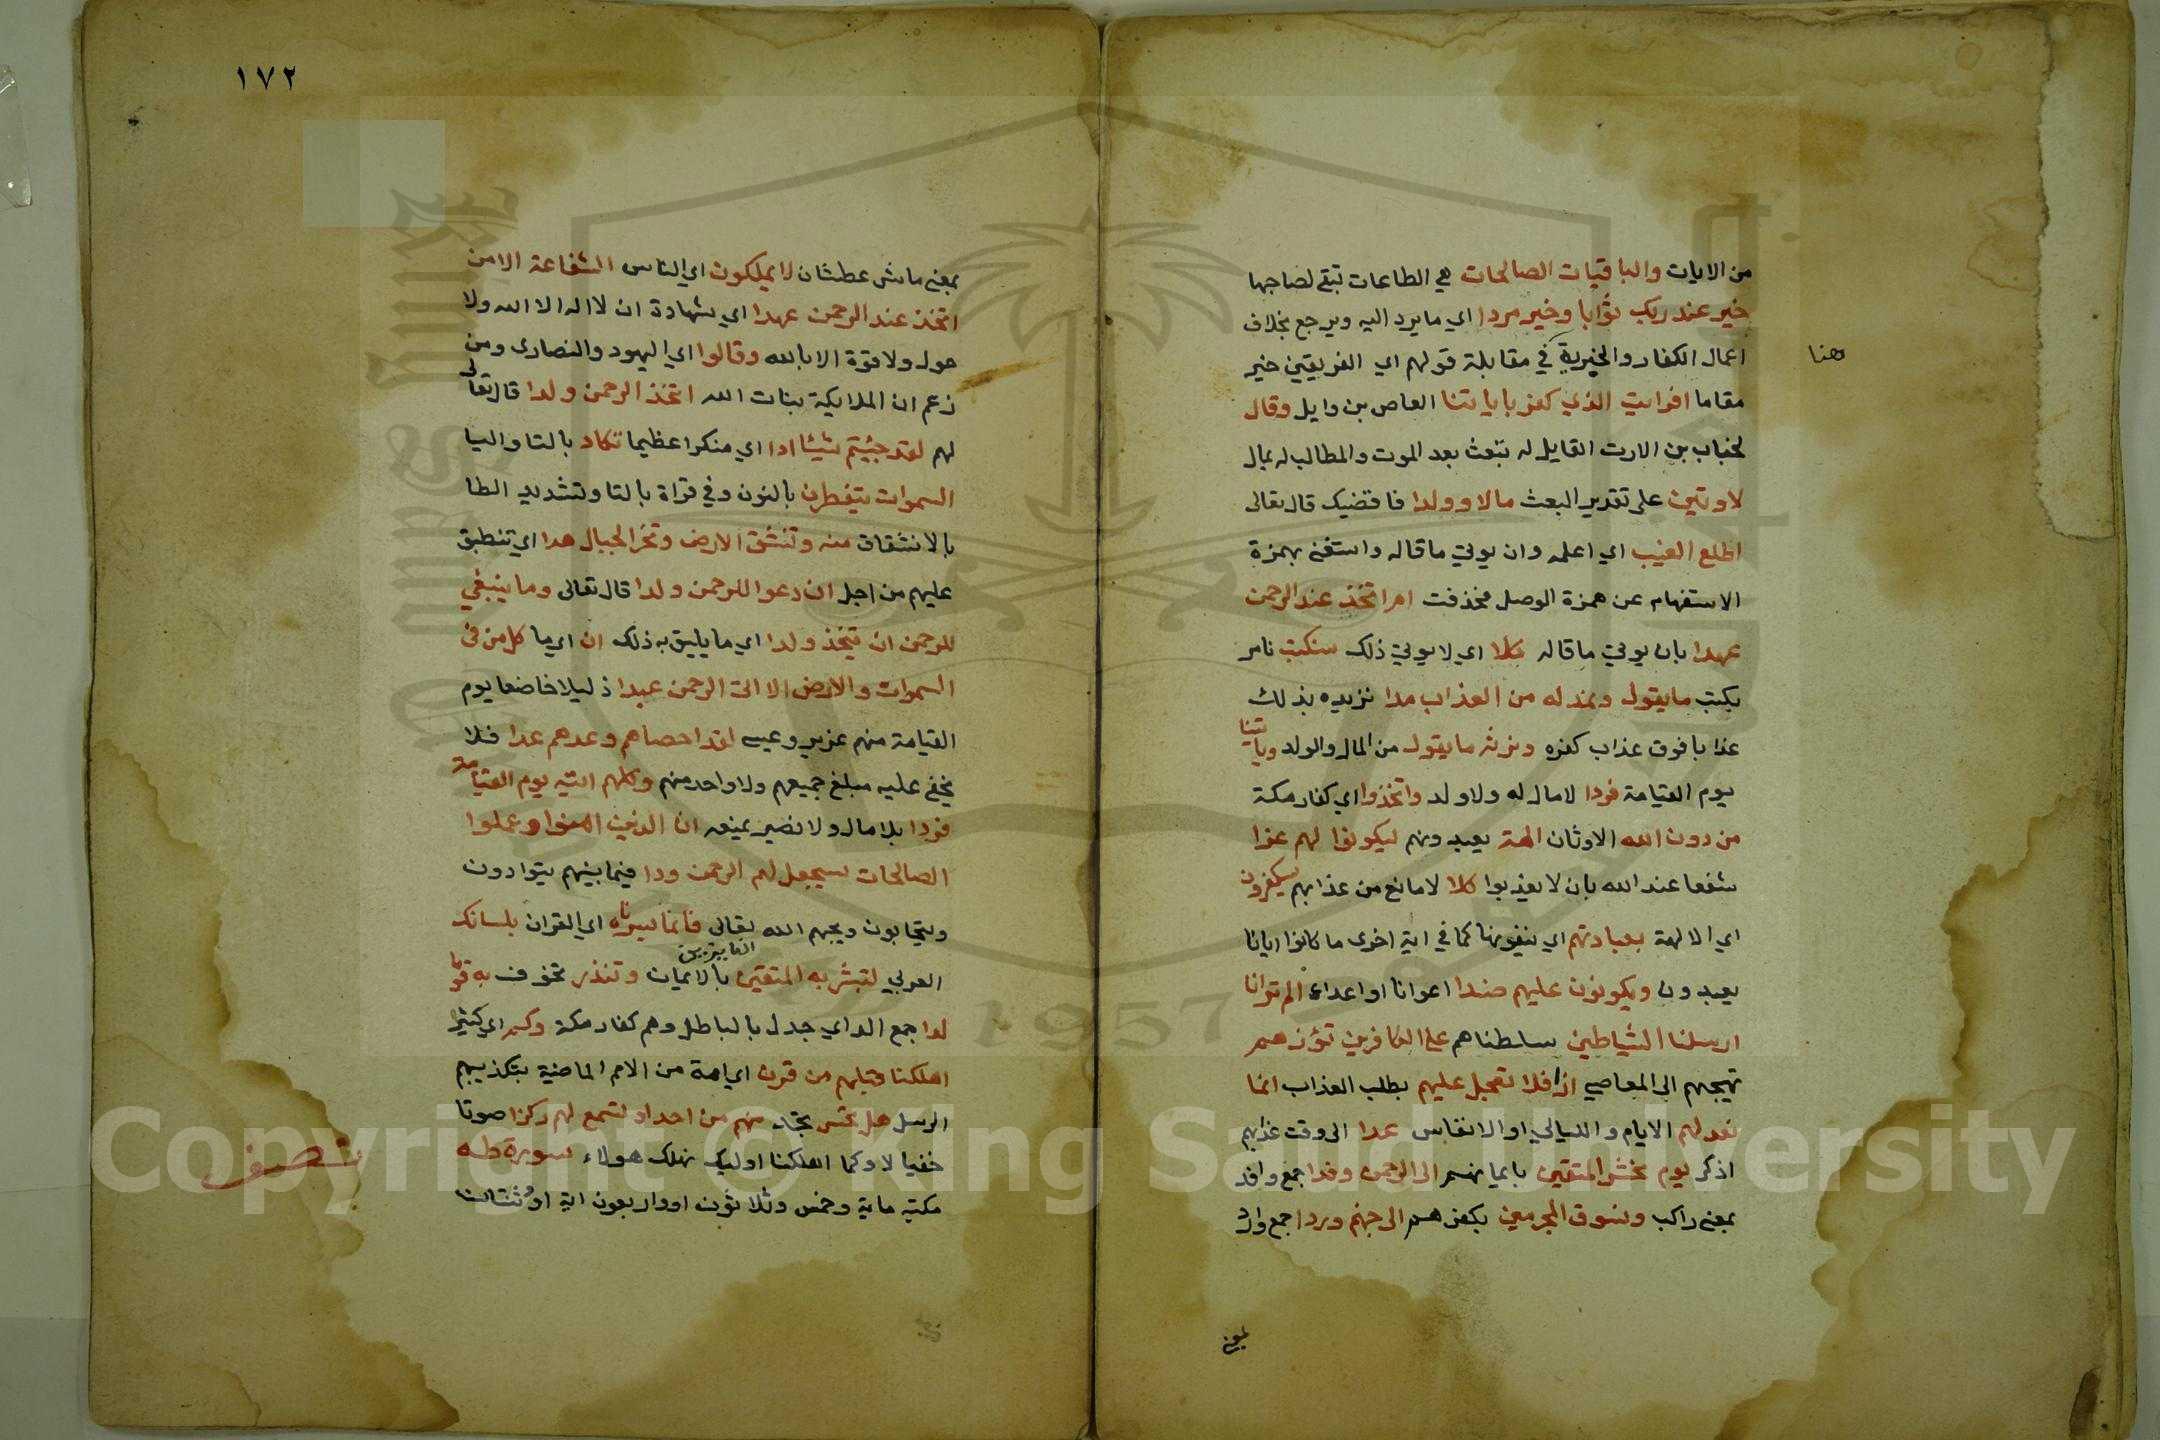 من الايات والباقيات الصالحات هي الطاعات تبقي لصاحبها
خير عند ربك ثوابا وخير مردا اي ما يرد اليه ويرجع بخلاف
اعمال الكفار والخيرية في مقابلة قولهم اي الفريقين خير
هنا
مقاما افرايت الذي كفر باياتنا العاص بن وايل وقال
لخباب بن الارت القايل له تبعث بعد الموت والمطالب له بمال
لاوتين على تقدير البعث مالا وولدا فاقضيك قال تعالى
اطلع الغيب اي اعلمه وان يوتي ما قاله واستغني بهمزة
الاستفهام عن همزة الوصل فحذفت ام اتخذ عند الرحمن
عهدا بان يوتي ما قاله كلا اي لا يوتي ذلك سنكتب نامر
بكتب ما يقول ونمد له من العذاب مدا نزيده بذلك
عذابا فوق عذاب كفره ونرثه ما يقول من المال والولد وياتينا
يوم القيامة فردا لا مال له ولا ولد واتخذوا اي كفار مكة
من دون الله الاوثان الهة يعبدونهم ليكونوا لهم عزا
شفعا عند الله بان لا يعذبوا كلا لا مانع من عذابهم سيكفرون
اي الالهة بعبادتهم اي ينفونها كما في اية اخرى ما كانوا ايانا
يعبدون ويكونون عليهم ضدا اعوانا او اعداء الم تر انا
ارسلنا الشياطين سلطناهم على الكافرين تؤزهم
تهيجهم الى المعاصي ازا فلا تعجل عليهم بطلب العذاب انما
نعد لهم الايام والليالي او الانفاس عدا الى وقت عذابهم
اذكر يوم نحشر المتقين بايمانهم الى الرحمن وفدا جمع وافد
بمعنى راكب ونسوق المجرمين بكفرهم الى جهنم وردا جمع وارد
بمعنى
١٧٢
بمعنى ماش عطشان لا يملكون اي الناس الشفاعة الا من
اتخذ عند الرحمن عهدا اي شهادة ان لا اله الا الله ولا
حول ولا قوة الا بالله وقالوا اي اليهود والنصارى ومن
زعم ان الملايكة بنات الله اتخذ الرحمن ولدا قال تعالى
لهم لقد جئيتم شيئا ادا اي منكرا عظيما تكاد بالتا واليا
السموات يتفطرن بالنون وفي قراة بالتا وتشديد الطا
بالانشقاق منه وتنشق الارض وتخر الجبال هدا اي تنطبق
عليهم من اجل ان دعوا للرحمن ولدا قال تعالى وما ينبغي
للرحمن ان يتخذ ولدا اي ما يليق به ذلك ان اي ما كل من في
السموات والارض الا اتي الرحمن عبدا ذليلا خاضعا يوم
القيامة منهم عزير وعيسى لقد احصاهم وعدهم عدا فلا
يخفي عليه مبلغ جميعهم ولا واحد منهم وكلهم اتيه يوم القيامة
فردا بلا مال ولا نصير يمنعه ان الذين امنوا وعملوا
الصالحات سيجعل لهم الرحمن ودا فيما بينهم يتوادون
ويتحابون ويحبهم الله تعالى فانما يسرناه اي القران بلسانك
العربي لتبشر به المتقين الفايزين بالايمان وتنذر تخوف به قوما
لدا جمع الد اي جدل بالباطل وهم كفار مكة وكم اي كثيرا
اهلكنا قبلهم من قرن اي امة من الامم الماضية بتكذيبهم
الرسل هل تحس تجد منهم من احد او تسمع لهم ركزا صوتا
خفيا لا وكما اهلكنا اوليك نهلك هولاء سورة طه
مكية ماية وخمس وثلاثون او واربعون اية او وثنتان
نصف
Copyright © King Saud University
1957